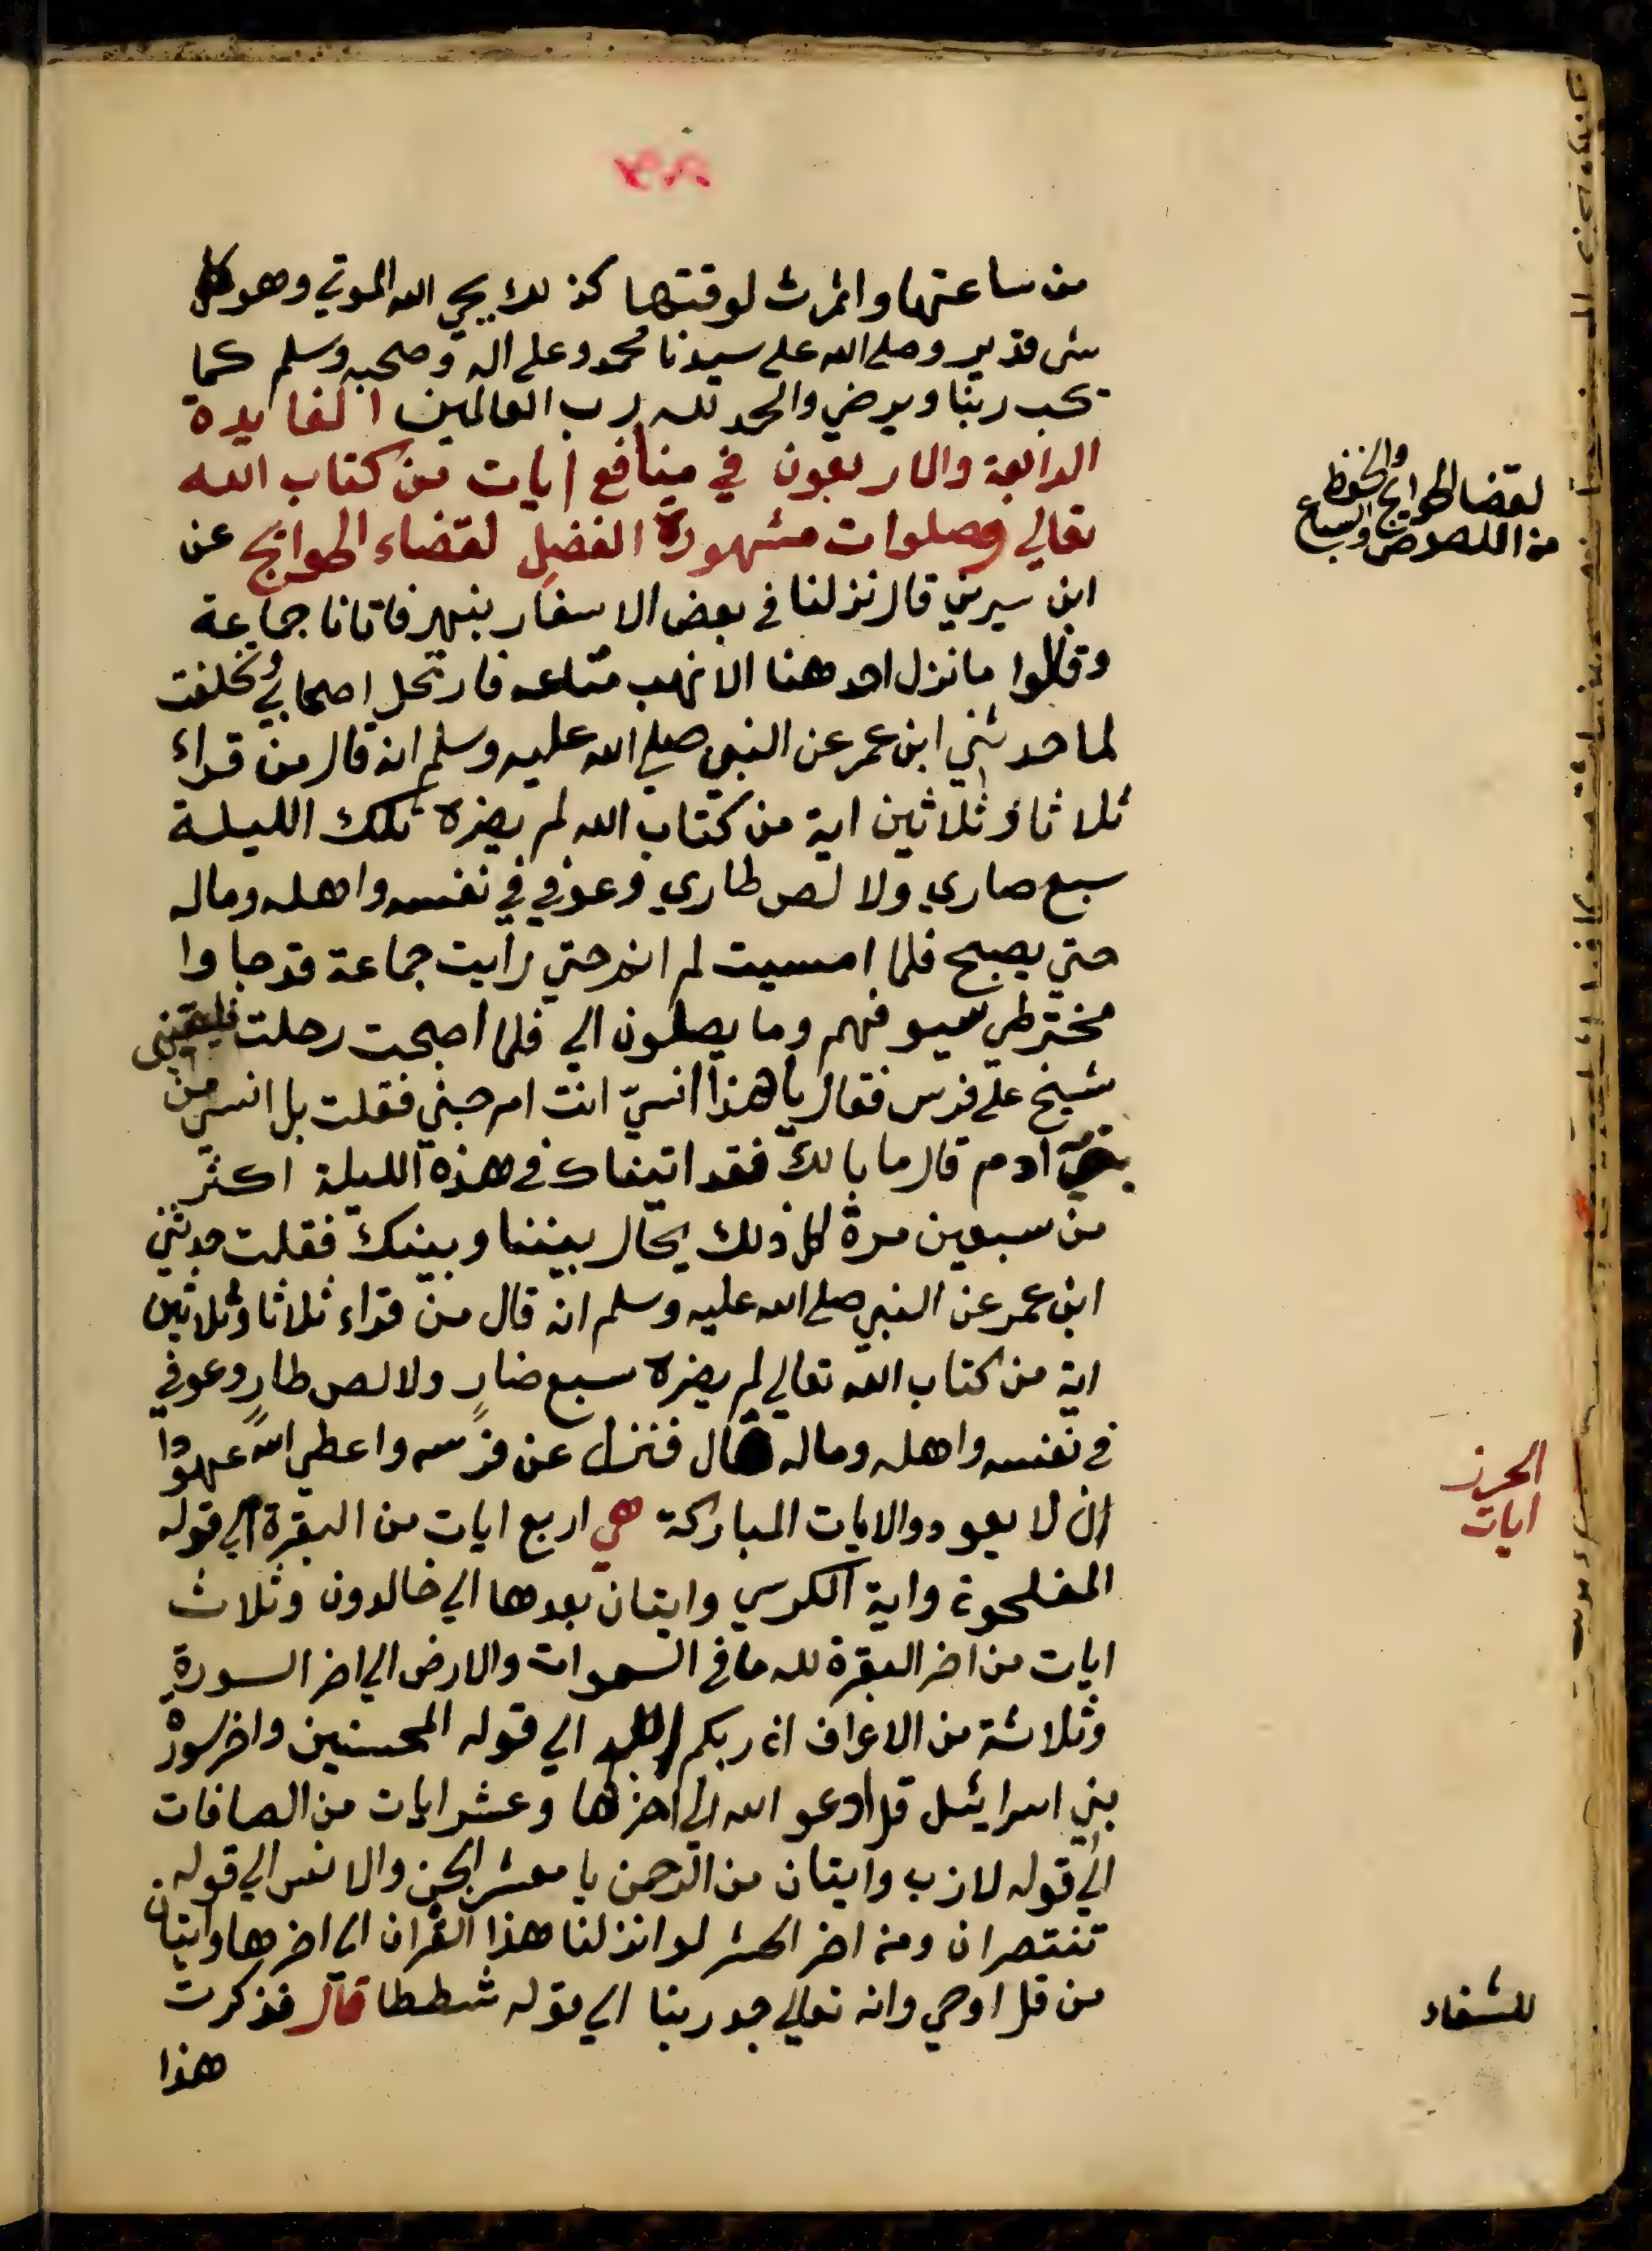 من ساعتها واثمرت لوقتها كذلك يحي الله الموتي وهو كل
شى قدير وصلى الله على سيدنا محمد وعلى اله وصحبه وسلم كما
يحب ربنا ويرضي والحمد لله رب العالمين الفايدة
الرابعة والاربعون في منافع ايات من كتاب الله
تعالي وصلوات مشهورة الفضل لقضاء الحوائج عن
لقضا الحوائج والحفظ
من اللصوص والسباع
ابن سيرين قال نزلنا في بعض الاسفار بنهر فاتانا جماعة
وقالوا ما نزل احد هنا الا نهب متاعه فارتحل اصحابي وتخلفت
لما حدثني ابن عمر عن النبي صلى الله عليه وسلم انه قال من قراء
ثلاثا وثلاثين اية من كتاب الله لم يضره تلك الليلة
سبع صاري ولا لص طاري وعوفي في نفسه واهله وماله
حتي يصبح فلما امسيت لم انم حتي رايت جماعة قد جاوا
مخترطي سيوفهم وما يصلون الي فلما اصبحت رحلت فلقينى
شيخ على فرس فقال يا هذا انسيّ انت ام جني فقلت بل انسي من
بني ادم قال ما بالك فقد اتيناك في هذه الليلة اكثر
من سبعين مرة كل ذلك يحال بيننا وبينك فقلت حدثني
ابن عمر عن النبي صلى الله عليه وسلم انه قال من قراء ثلاثا وثلاثين
اية من كتاب الله تعالي لم يضره سبع ضارٍ ولا لص طارٍ وعوفي
في نفسه واهله وماله قال فنزل عن فرسه واعطي الله عهودا
الحرز
ايات
ان لا يعود والايات المباركة هي اربع ايات من البقرة الي قوله
المفلحون واية الكرسي وايتان بعدها الي خالدون وثلاث
ايات من اخر البقرة لله ما في السموات والارض الي اخر السورة
وثلاثة من الاعراف ان ربكم الله الي قوله المحسنين واخر سورة
بني اسرائيل قل ادعو الله الي اخرها وعشر ايات من الصافات
الي قوله لازب وايتان من الرحمن يا معشر الجن والانس الي قوله
تنتصران ومن اخر الحشر لو انزلنا هذا القران الي اخرها وايتان
من قل اوحي وانه تعالي جد ربنا الي قوله شططا قال فذكرت
للشفاء
هذا